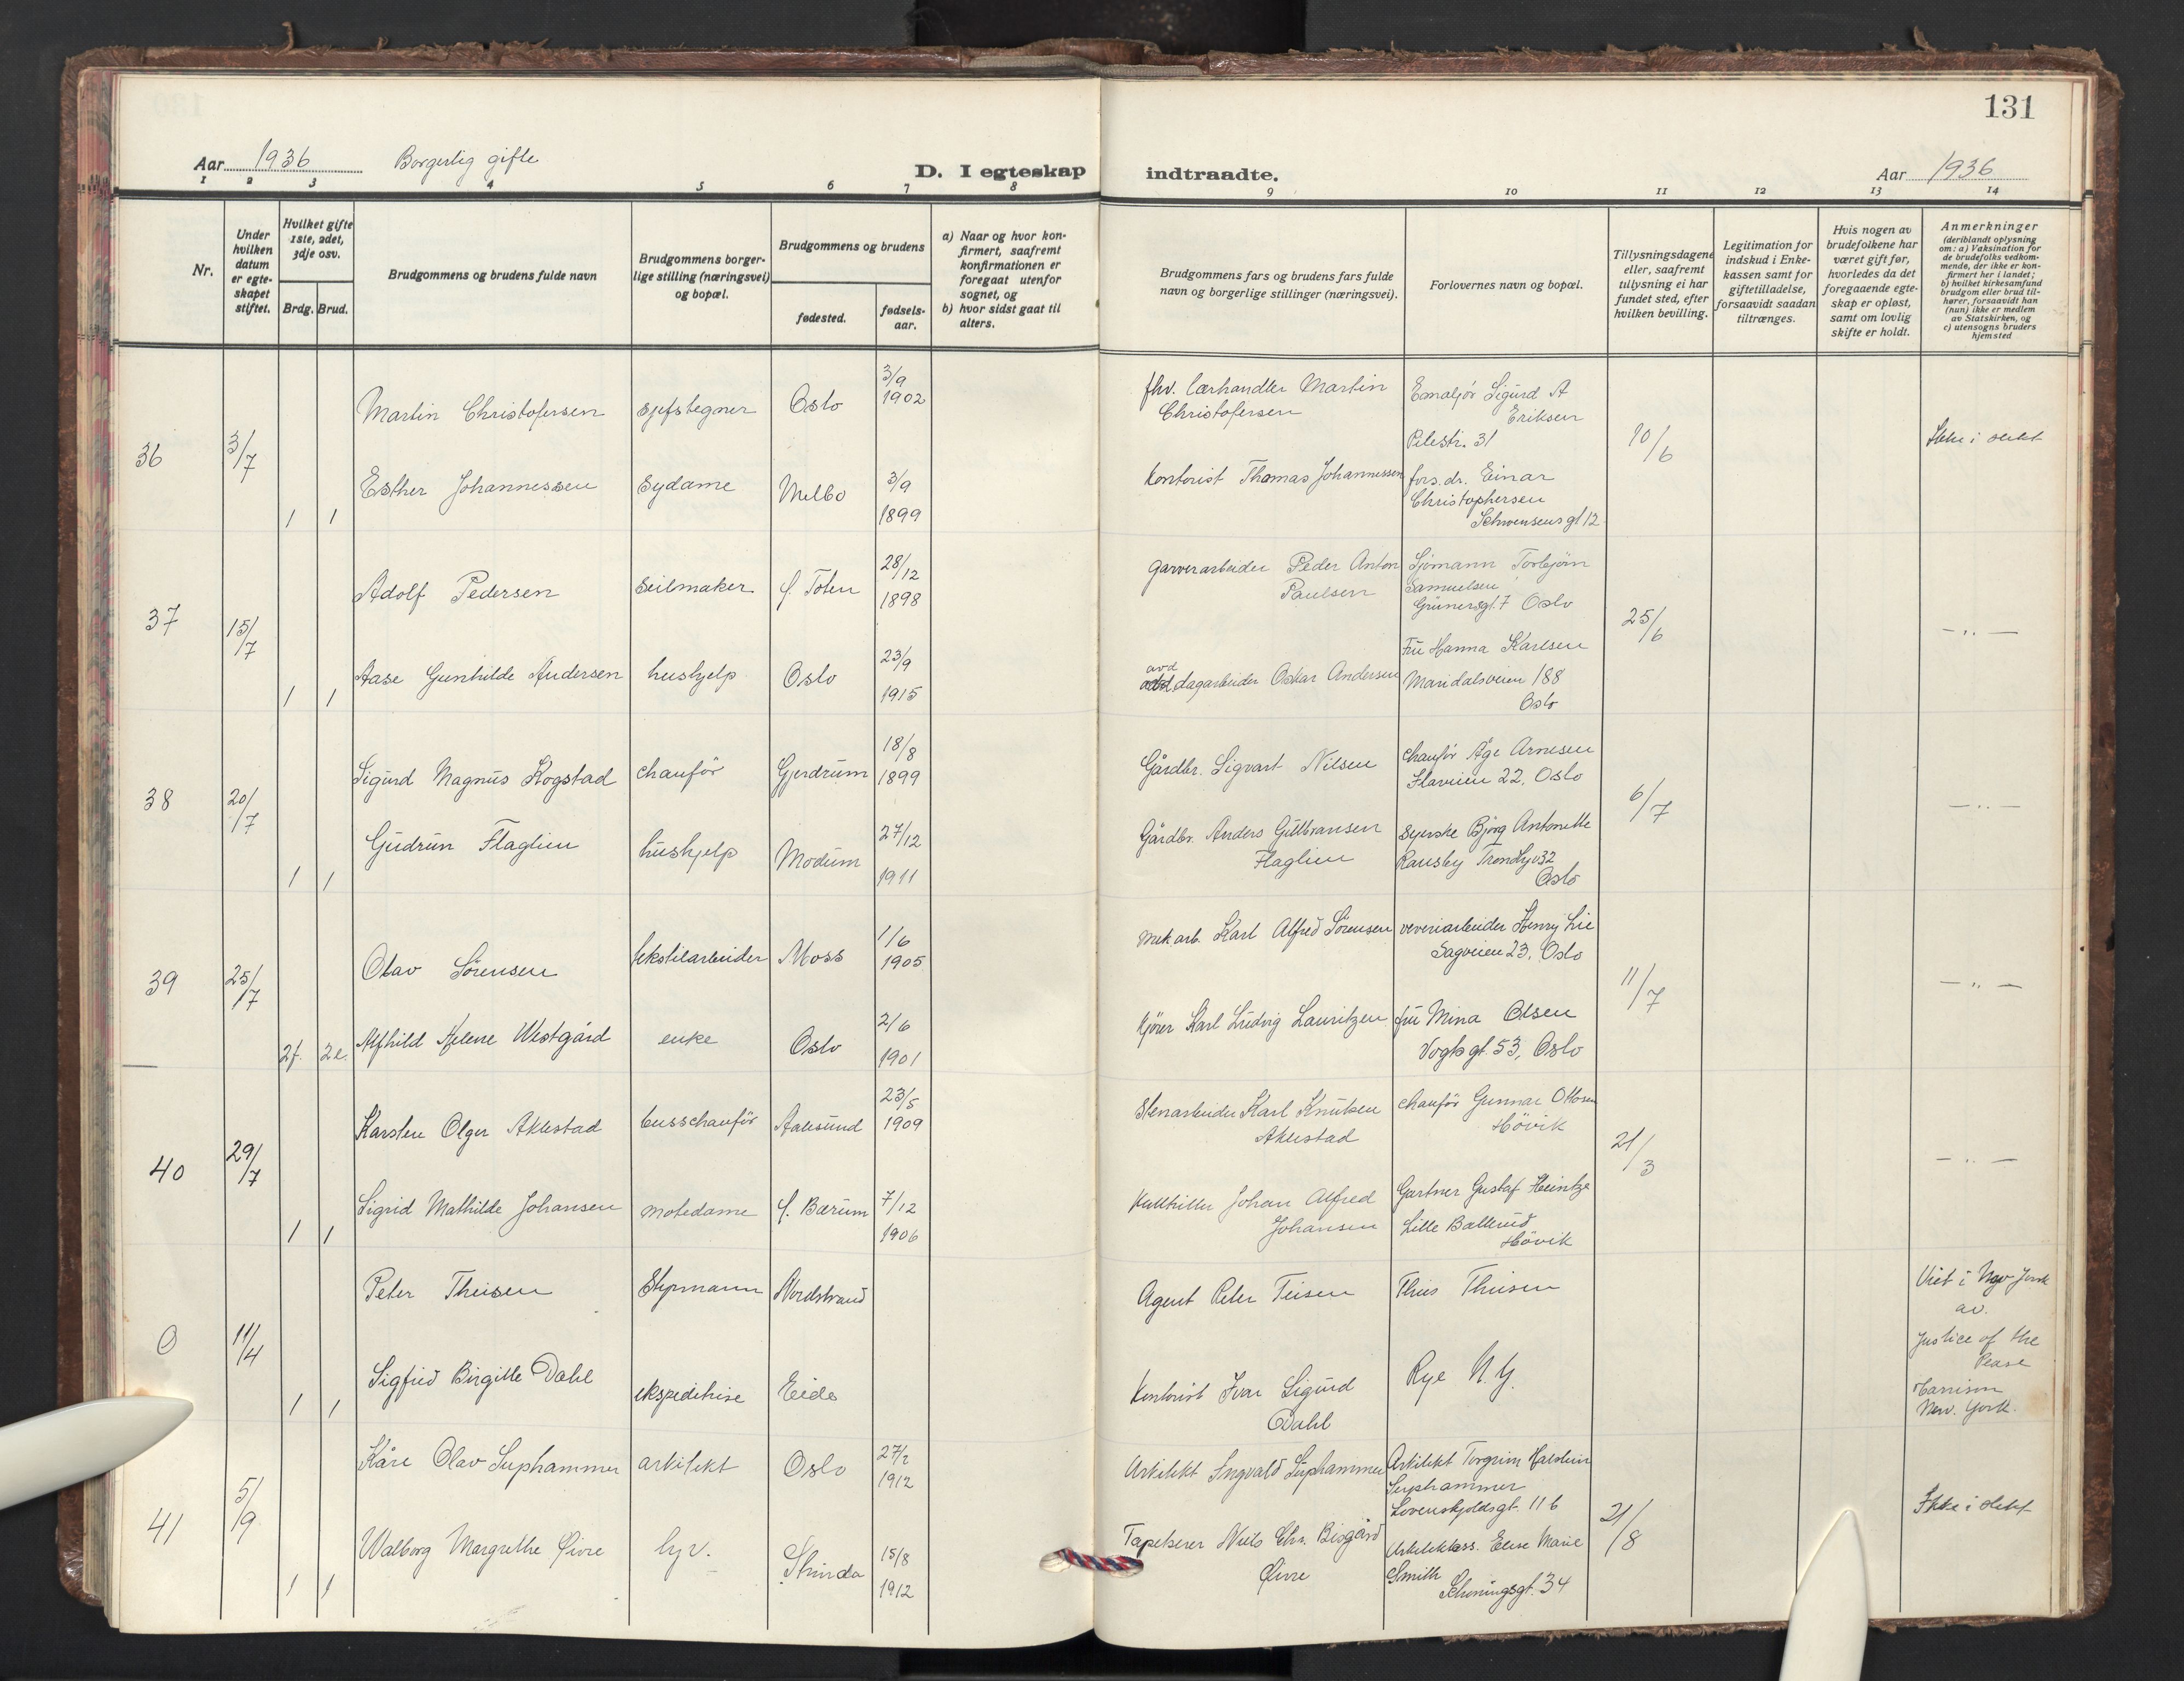 131
Aar 1936 Borgerlig gifte D. I egteskap indtraadte. Aar 1936
1 2 3 4 5 6 7 8 9 10 11 12 13 14
Nr.
Under hvilken datum er egte-skapet stiftet.
Hvilket gifte 1ste, 2det, 3dje osv.
Brdg. Brud.
Brudgommens og brudens fulde navn
Brudgommens borger-lige stilling (næringsvei) og bopæl.
Brudgommens og brudens
fødested.
fødsels-aar.
a) Naar og hvor kon-firmert, saafremt konfirmationen er foregaat utenfor sognet, og
b) hvor sidst gaat til alters.
Brudgommens fars og brudens fars fulde navn og borgerlige stillinger (næringsvei).
Forlovernes navn og bopæl.
Tillysningsdagene eller, saafremt tullysning ei har fundet sted, efter hvilken bevilling.
Legitimation for indskud i Enke-kassen samt for giftetilladelse, forsaavidt saadan tiltrænges.
Hvis nogen av brudefolkene har været gift før, hvorledes da det foregaaende egte-skap er opløst, samt om lovlig skifte er holdt.
Anmerkninger
(deriblandt oplysning om: a) Vaksination for de brudefolks vedkom-mende, der ikke er kon-firmert her i landet; b) hvilket kirkesamfund brudgom eller brud til-hører, forsaavidt han (hun) ikke er medlem av Statskirken, og c) utensogns bruders hjemsted
36 3/7 1 1
Martin Christofersen sjefstegner Oslo 3/9 1902
fhv. lærhandler Martin Christofersen
Emaljør Sigurd A Eriksen
Pilestr. 31
10/6
Ikke i slekt
Esther Johannessen Sydame Melbo 3/9 1899
Kontorist Thomas Johannessen
fors. dr. Einar
Christophersen
Schwensens gt 12
37 15/7 1 1
Adolf Pedersen Seilmaker Ø. Toten 28/12 1898
Garverarbeider Peder Anton Paulsen
Sjømann Torbjørn
Samuelsen
Grünersgt. 7 Oslo
25/6
- " -
Aase Gunhilde Andersen hushjelp Oslo 23/9 1915
avd dagarbeider Oskar Andersen
Fru Hanna Karlsen
Maridalsveien 188
Oslo
38 20/7 1 1
Sigurd Magnus Kogstad chauför Gjerdrum 18/8 1899
Gårdbr. Sigvart Nilsen
Chauför Åge Arnesen
22, Oslo
6/7
- " -
Gudrun Flaglien hushjelp Modum 27/12 1911
Gårdbr. Anders Gulbransen Flaglien
Syerske Bjørg Antonette
Ransby
Oslo
39 25/7 2f. 2e.
Olav Sørensen tekstilarbeider Moss 1/6 1905
Mek arb. Karl Alfred Sørensen
veveriarbeider Henry Lie
Sagveien 23, Oslo
11/7
- " -
Alfhild Helene Westgård enke Oslo 2/6 1901
Kjører Karl Ludvig Lauritzen
fru Mina Olsen
Vogts gt. 53, Oslo
40 29/7 1 1
Karsten Olger Aklestad busschauför Aalesund 23/5 1909
Stenarbeider Karl Knutsen Aklestad
Chauför Gunnar Ottosen
Høvik
21/3
- " -
Sigrid Mathilde Johansen motedame Ø. Bærum 7/12 1906
Johan Alfred Johansen
Gartner Gustaf Heintze
Lille Ballerud
Høvik
0 11/4 1 1
Peter Theisen Styrmann Nordstrand
Agent Peter Teisen
Theisen
Viet i New York
av.
Justice of the
Pease
Harrison
New. York.
Sigfrid Birgitte Dahl ekspeditrise Eide
Kontorist Ivar Sigurd Dahl
Rye N.Y.
41 5/9 1 1
Kåre Olav Suphammer arkitekt Oslo 27/2 1912
Arkitekt Ingvald Suphammer
Arkitekt Torgrim Halstein
Suphammer
Lovenskjoldsgt. 11 b
21/8
Ikke i slekt
Walborg Margrethe Øivre Strinda 15/8 1912
Tapetserer Niels Chr. Bisgård Øivre
Arkitektass. Else Marie
Smith
Schøningsgt. 34